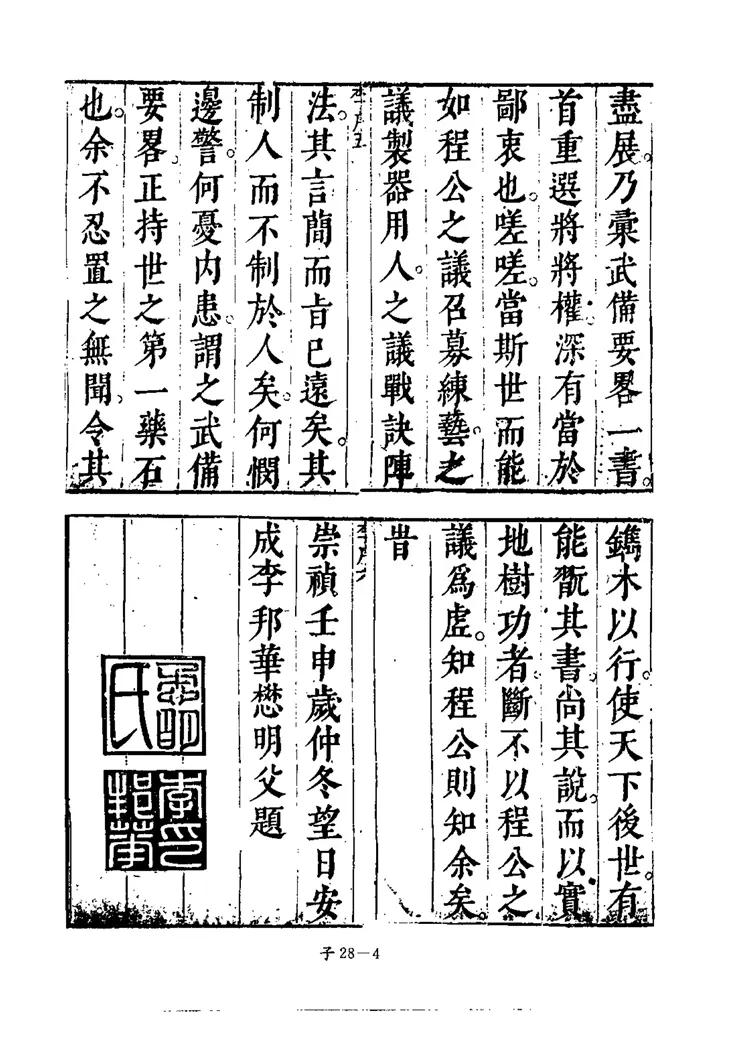 盡展。乃彙武備要畧一書。
首重選將將權。深有當於
鄙衷也。嗟嗟。當斯世而能
如程公之議召募練藝。之
議製器用人。之議戰訣陣
李序五
法。其言簡而旨已遠矣。其
制人而不制於人矣。何憫
邊警。何憂内患。謂之武備
要畧。正持世之第一藥石
也。余不忍置之無聞。令其
鐫木以行。使天下後世。有
能翫其書。尚其說。而以實
地樹功者。斷不以程公之
議爲虗。知程公則知余矣。
旹
李序六
崇禎壬申歲仲冬望日安
成李邦華懋明父題
懋明氏
李印邦華
子28—4